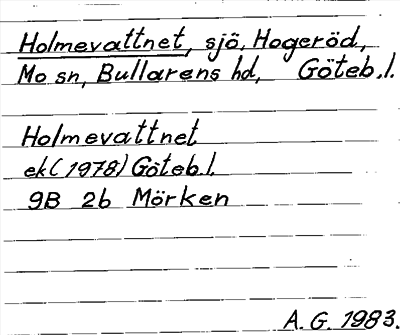 Holmevattnet, sjö, Hogeröd,
Mo sn, Bullarens hd, Göteb.l.
Holmevattnet
ek (1978) Göteb.l.
9B 2b Mörken
A.G. 1983.